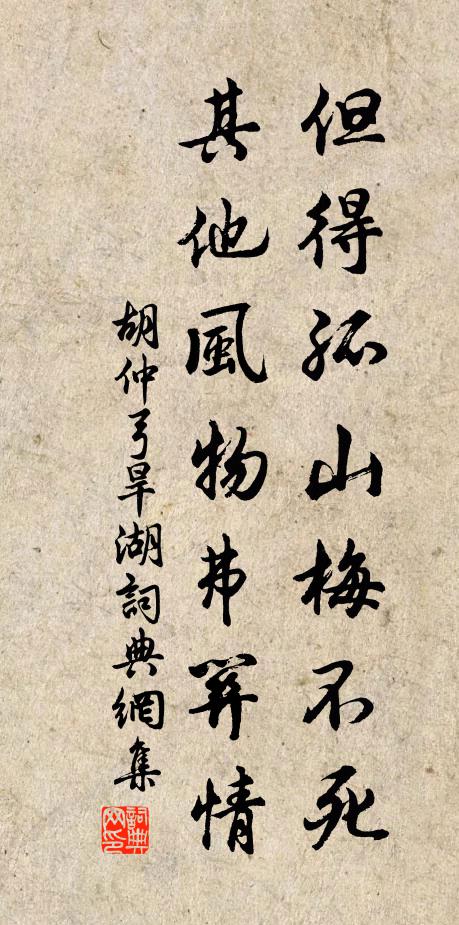 但得孤山梅不死
其他風物弗關情
胡仲弓旱湖詞典網集
詞典
网印